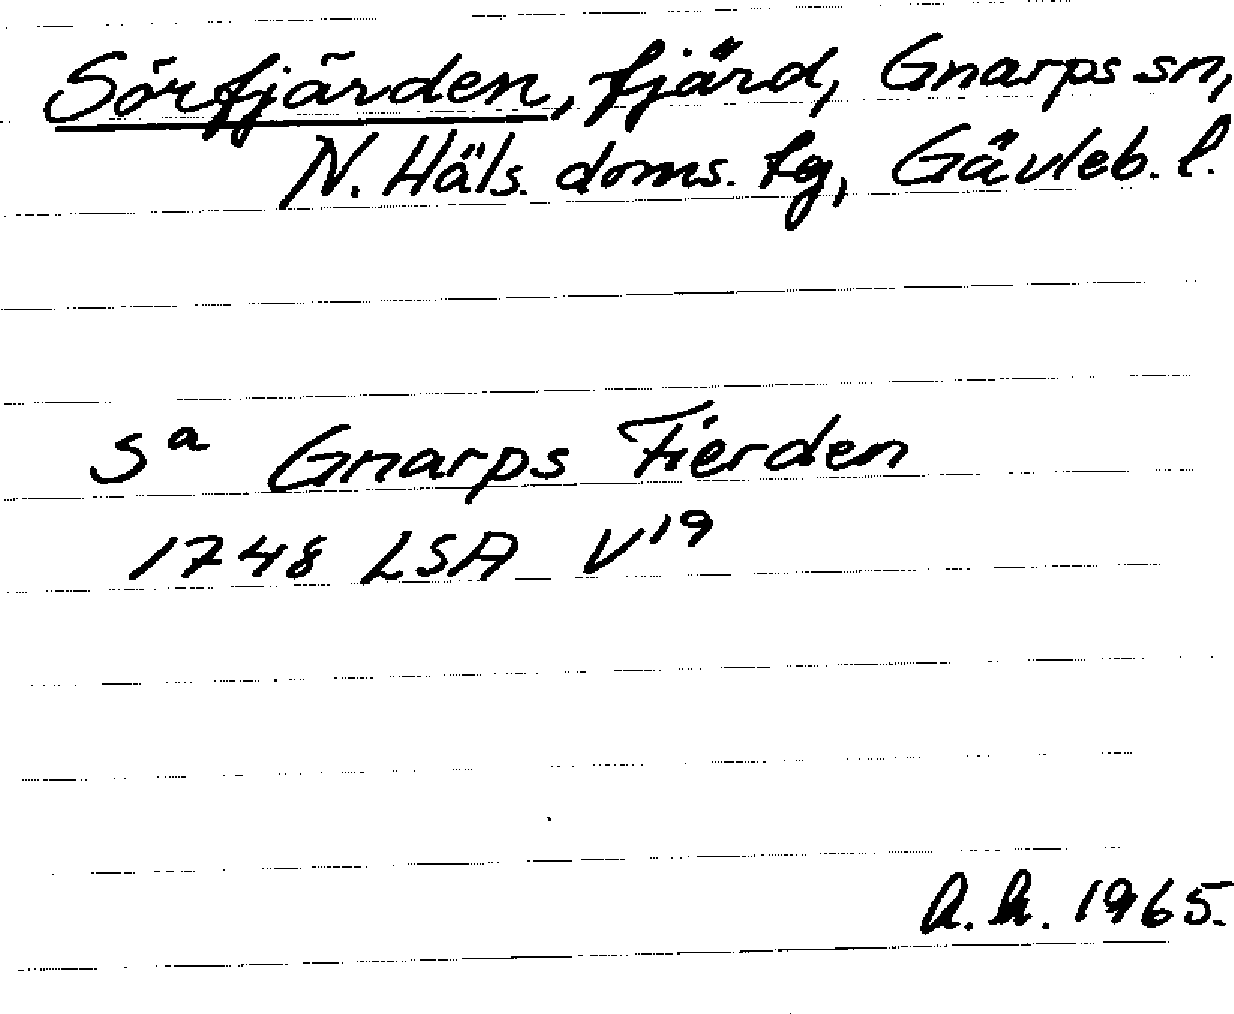 Sörfjärden, fjärd, Gnarps sn,
N. Häls. doms. tg, Gävleb. l.
Sᵃ Gnarps Fierden
1748 LSA V¹⁹
A. H. 1965.